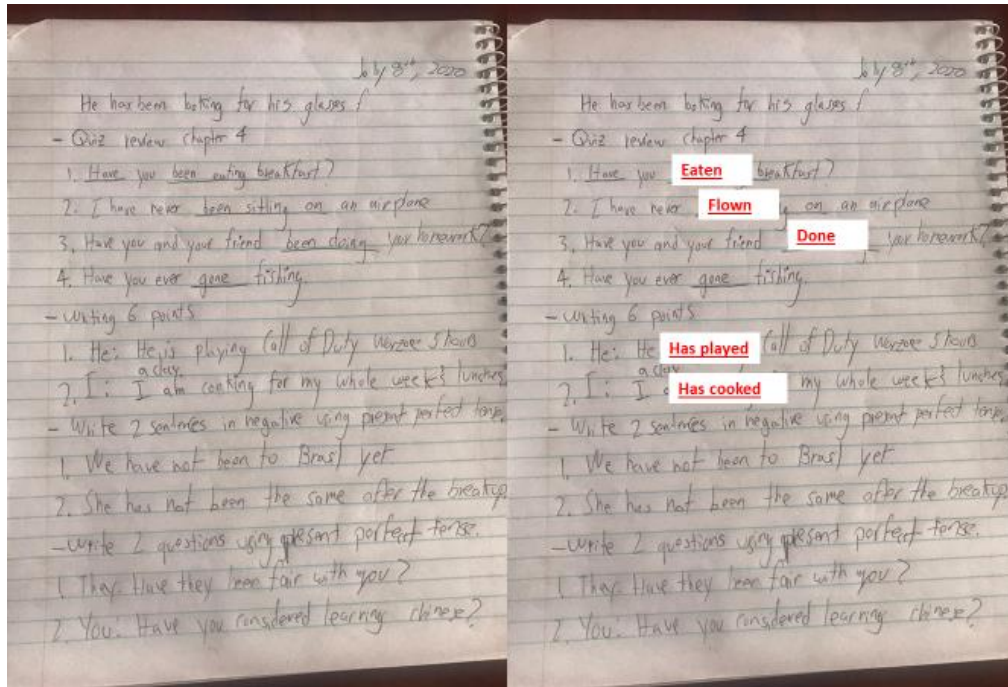 July 8th, 2020
He has been looking for his glasses
- Quiz review chapter 4
1. Have you been eating breakfast?
2. I have never been sitting on an airplane
3. Have you and your friend been doing your homework?
4. Have you ever gone fishing.
- Writing 6 points
1. He: He is playing Call of Duty Warzone 5 hours
a day.
2. I: I am cooking for my whole week's lunches
- Write 2 sentences in negative using present perfect tense.
1. We have not been to Brasl yet
2. She has not been the same after the breakup.
- Write 2 questions using present perfect tense.
1. They: Have they been fair with you?
2. You: Have you considered learning chinese?
July 8th, 2020
He has been looking for his glasses
- Quiz review chapter 4
1. Have you Eaten breakfast?
2. I have never Flown on an airplane
3. Have you and your friend Done your homework?
4. Have you ever gone fishing.
- Writing 6 points
1. He: He Has played Call of Duty Warzone 5 hours
a day
2. I: I Has cooked my whole week's lunches
- Write 2 sentences in negative using present perfect tense.
1. We have not been to Brasl yet
2. She has not been the same after the breakup.
- Write 2 questions using present perfect tense.
1. They: Have they been fair with you?
2. You: Have you considered learning chinese?